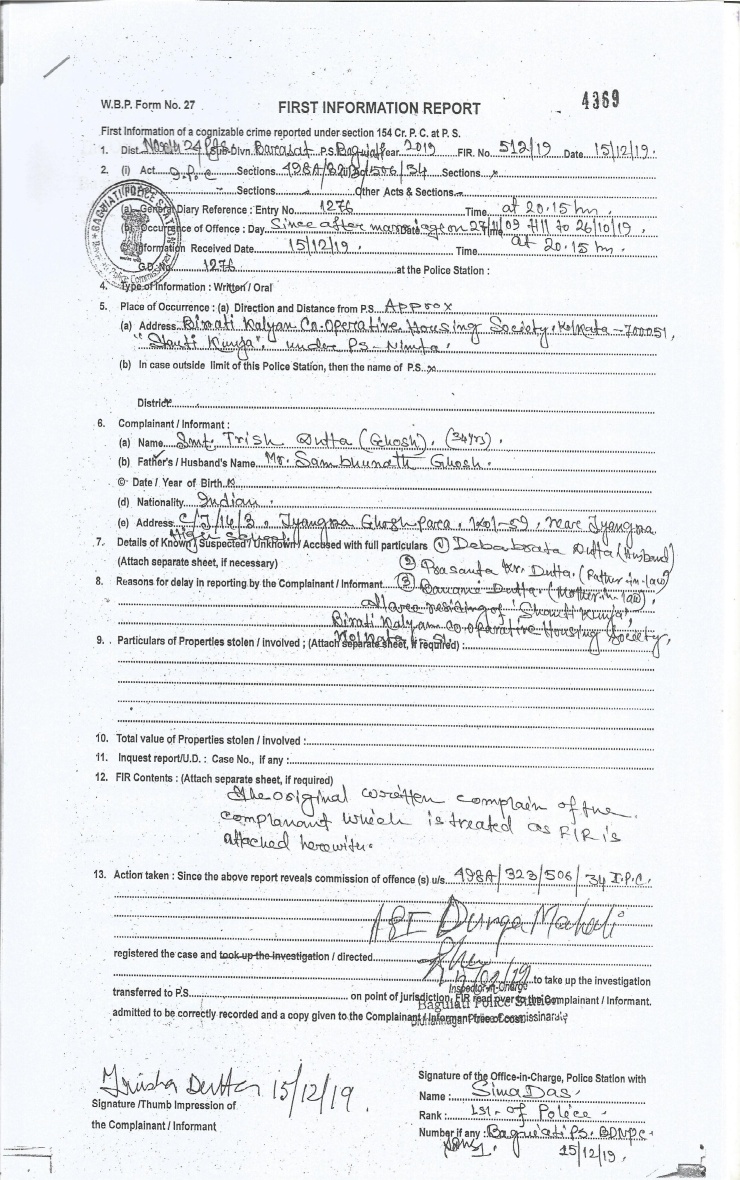 4369
W.B.P. Form No. 27 FIRST INFORMATION REPORT
First Information of a cognizable crime reported under section 154 Cr. P. C. at P. S.
1. Dist. North 24 Pgs Sub-Divn. Barasat P.S. Baguiati Year 2019 FIR. No. 512/19 Date 15/12/19.
2. (i) Act I.P.C Sections 498A/323/506/34 Sections x
Sections Other Acts & Sections
(a) General Diary Reference : Entry No. 1276 Time at 20.15 hrs.
(b) Occurrence of Offence : Day Since after marriage on 27/11/09 till to 26/10/19.
Information Received Date 15/12/19. Time at 20.15 hr.
G.D. No. 1276 at the Police Station :
4. Type of Information : Written / Oral
5. Place of Occurrence : (a) Direction and Distance from P.S. Approx
(a) Address Birati Kalyan Co-operative Housing Society, Kolkata-700051,
"Shanti Kunja", under PS- Nimta.
(b) In case outside limit of this Police Station, then the name of P.S. x
District
6. Complainant / Informant :
(a) Name Smt. Trish Dutta (Ghosh). (34yrs).
(b) Father's / Husband's Name Mr. Sambhunath Ghosh.
© Date / Year of Birth
(d) Nationality Indian.
(e) Address C/J/16/3, Jyangra Ghosh Para, Kol-59, near Jyangra
High School
7. Details of Known / Suspected / Unknown / Accused with full particulars ① Debabrata Dutta (Husband)
(Attach separate sheet, if necessary) ② Prasanta Kr. Dutta. (Father-in-law)
8. Reasons for delay in reporting by the Complainant / Informant ③ Banani Dutta. (Mother-in-law),
all are residing of 'Shanti Kunja',
Birati Kalyan Co-operative Housing Society,
Kolkata-51.
9. Particulars of Properties stolen / involved ; (Attach separate sheet, if required) :
10. Total value of Properties stolen / involved :
11. Inquest report/U.D. : Case No., if any :
12. FIR Contents : (Attach separate sheet, if required)
The original written complain of the
complanant which is treated as FIR is
attached herewith.
13. Action taken : Since the above report reveals commission of offence (s) u/s. 498A/323/506/34 I.P.C.
ASI Durga Mahali
registered the case and took up the investigation / directed
to take up the investigation
Inspector-in-Charge
transferred to P.S. on point of jurisdiction, FIR read over to the Complainant / Informant.
Baguiati Police Station
admitted to be correctly recorded and a copy given to the Complainant / Informant free of cost.
Bidhannagar Police Commissionerate
Trisha Dutta 15/12/19.
Signature /Thumb Impression of
the Complainant / Informant
Signature of the Office-in-Charge, Police Station with
Name : Sima Das.
Rank : LSI- of Police.
Number if any : Baguiati P.S. BDNPC.
15/12/19.